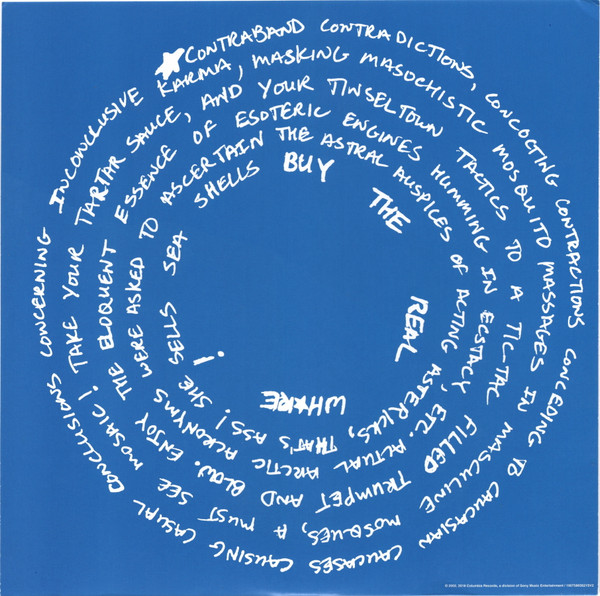 ★CONTRABAND CONTRADICTIONS, CONCOCTING CONTRACTIONS CONCEDING TO CAUCASIAN CAUCASES CAUSING CASUAL CONCLUSIONS CONCERNING
INCONCLUSIVE KARMA, MASKING MASOCHISTIC MOSQUITO MASSAGES IN MASCULINE MOSQUES, A MUST SEE MOSAIC! TAKE YOUR
TARTAR SAUCE, AND YOUR TINSELTOWN TACTICS TO A TIC TAC FILLED TRUMPET AND BLOW. ENJOY THE ELOQUENT
ESSENCE OF ESOTERIC ENGINES HUMMING IN ECSTACY, ETC. ACTUAL ARCTIC ACRONYMS WERE ASKED TO
ASCERTAIN THE ASTRAL AUSPICES OF ACTING ASTERICKS, THAT'S ASS! SHE SELLS SEA
SHELLS BUY THE REAL WH★RE!
Columbia Records, a division of Sony Music Entertainment